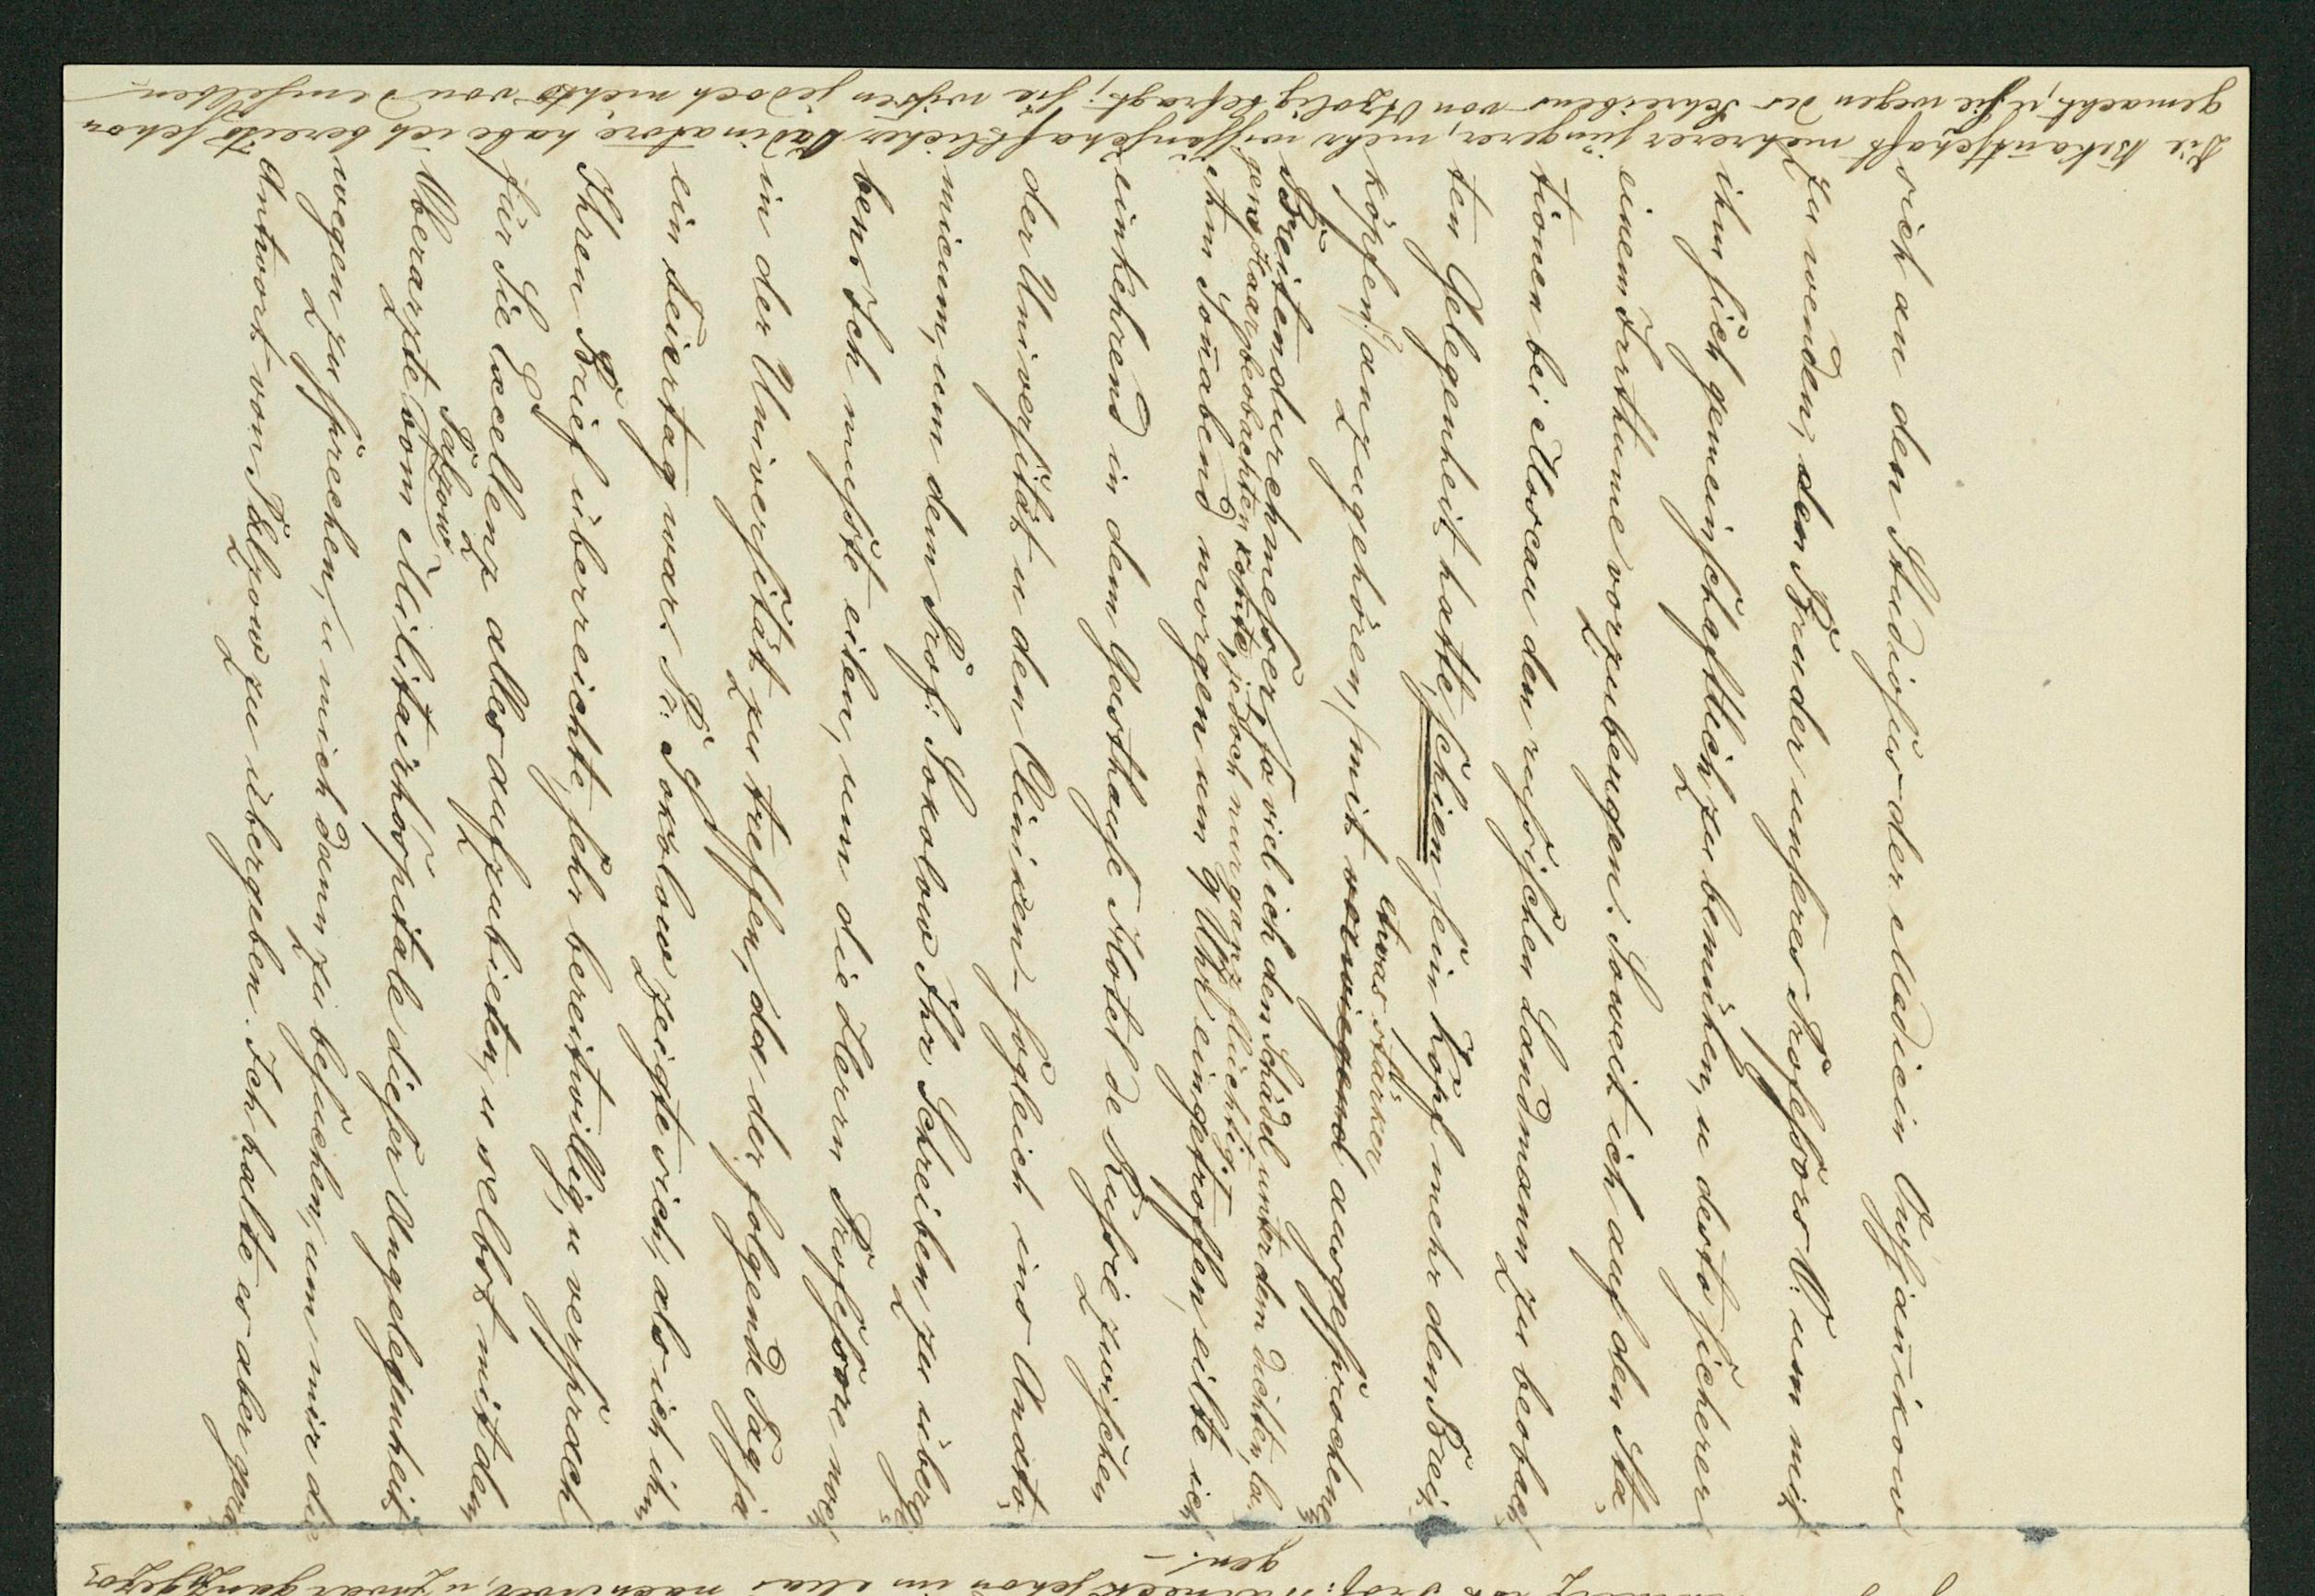 sich an den Studiosus der Medicin Owsjänikow
zu wenden, den Bruder unseres Professors O. um mit
ihm sich gemeinschaftlich zu bemühen, u desto sicherer
einem Irrthume vorzubeugen. Soweit ich auf den Sta-
tionen bei Moscau den russischen Landmann zu beobach-
ten Gelegenheit hatte, schien sein Kopf mehr den Breit-
köpfen anzugehören, (mit etwas stärker ausgesprochenem
Breitendurchmesser, so viel ich den Schädel unter dem dichten, lan-
gen Haar beobachten konnte, jedoch nur ganz flüchtig.)
Am Sonnabend morgen um 9 Uhr eingetroffen, eilte ich
einkehrend in dem Gasthause Hotel de Russie zwischen
der Universität u den Cliniken sogleich ins Anato-
micum, um dem Prof. Sokolow Ihr Schreiben zu überge-
ben. Ich musste eilen, um die Herrn Professore noch
in der Universität zu treffen, da der folgende Tag ja
ein Feiertag war. Pr. Sokolow zeigte sich, als ich ihm
Ihren Brief überreichte, sehr bereitwillig, u versprach
für Sie Excellenz alles aufzubieten, u selbst mit dem
Oberarzte Pälzow vom Militairhospitale dieser Angelegenheit
wegen zu sprechen, u mich dann zu besuchen, um mir die
Antwort von Pälzow zu übergeben. Ich halte es aber gera-
Die Bekanntschaft mehrerer jüngerer, mehr wissenschaftlicher Ordinatore habe ich bereits schon
gemacht, u sie wegen des Schreibens von befragt; sie wissen jedoch nichts von demselben
gen! –